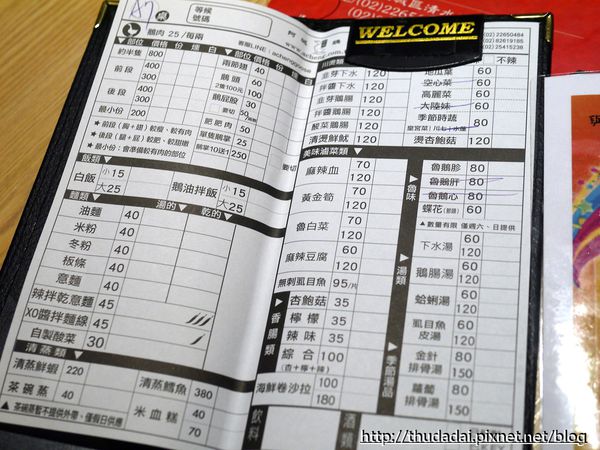 等候
號碼
桌
鵝肉 25/每兩
客服LINE:achengoose
WELCOME
(02)2265
(02)22650484
(02)82619185
(02)25415238
部位 價格 份 煙 白 部位 價格 份 煙 白
約半隻 800
前段 400 300
後段 400 300
最小份 200
兩節翅 40
鵝頭 60
2隻100元
鵝屁股 30
要切 50
肥肥肉 50
單隻鵝掌 25
鵝掌10送1 250
前段(胸+翅)較瘦、較有肉
後段(腿+屁)較肥、較甜嫩
最小份:會準備較有肉的部位
飯類▼
白飯 小15 大25
鵝油拌飯 小15 大25
麵類▼ 湯的▼ 乾的▼
油麵 40
米粉 40
冬粉 40
板條 40
意麵 40
辣拌乾意麵 45
XO醬拌麵線 45
自製酸菜 30
清蒸類▼
清蒸鮮蝦 220
清蒸鱈魚 380
茶碗蒸 40
米血糕 40 70
▲茶碗蒸暫不提供外帶、僅假日供應
川燙類▼
韭芽下水 120
拌薑下水 120
韭芽鵝腸 120
拌薑鵝腸 120
酸菜鵝腸 120
清燙鮮魷 120
不辣
地瓜菜 60
空心菜 60
高麗菜 60
大陸妹 60
季節時蔬 60
皇宮菜/川七+水蓮 80
燙杏鮑菇 60
美味滷菜類▼
麻辣血 70
要切
黃金筍 70
魯白菜 70
麻辣豆腐 60 120
無刺虱目魚 95/片
魯味▼
魯鵝胗 80
魯鵝肝 80
魯鵝心 80
蝶花(鵝腸) 60
▲數量有限 僅週六、日提供
湯類▼
下水湯 60 120
鵝腸湯 60 120
蛤蜊湯 60 120
虱目魚皮湯 60 120
香腸類▼
杏鮑菇 35
檸檬 35
辣味 35
綜合 100
(杏+檸+辣)
海鮮卷沙拉 100 180
季節湯品▼
金針排骨湯 80 150
蘿蔔排骨湯 80 150
飲料
酒類
http://thudadai.pixnet.net/blog